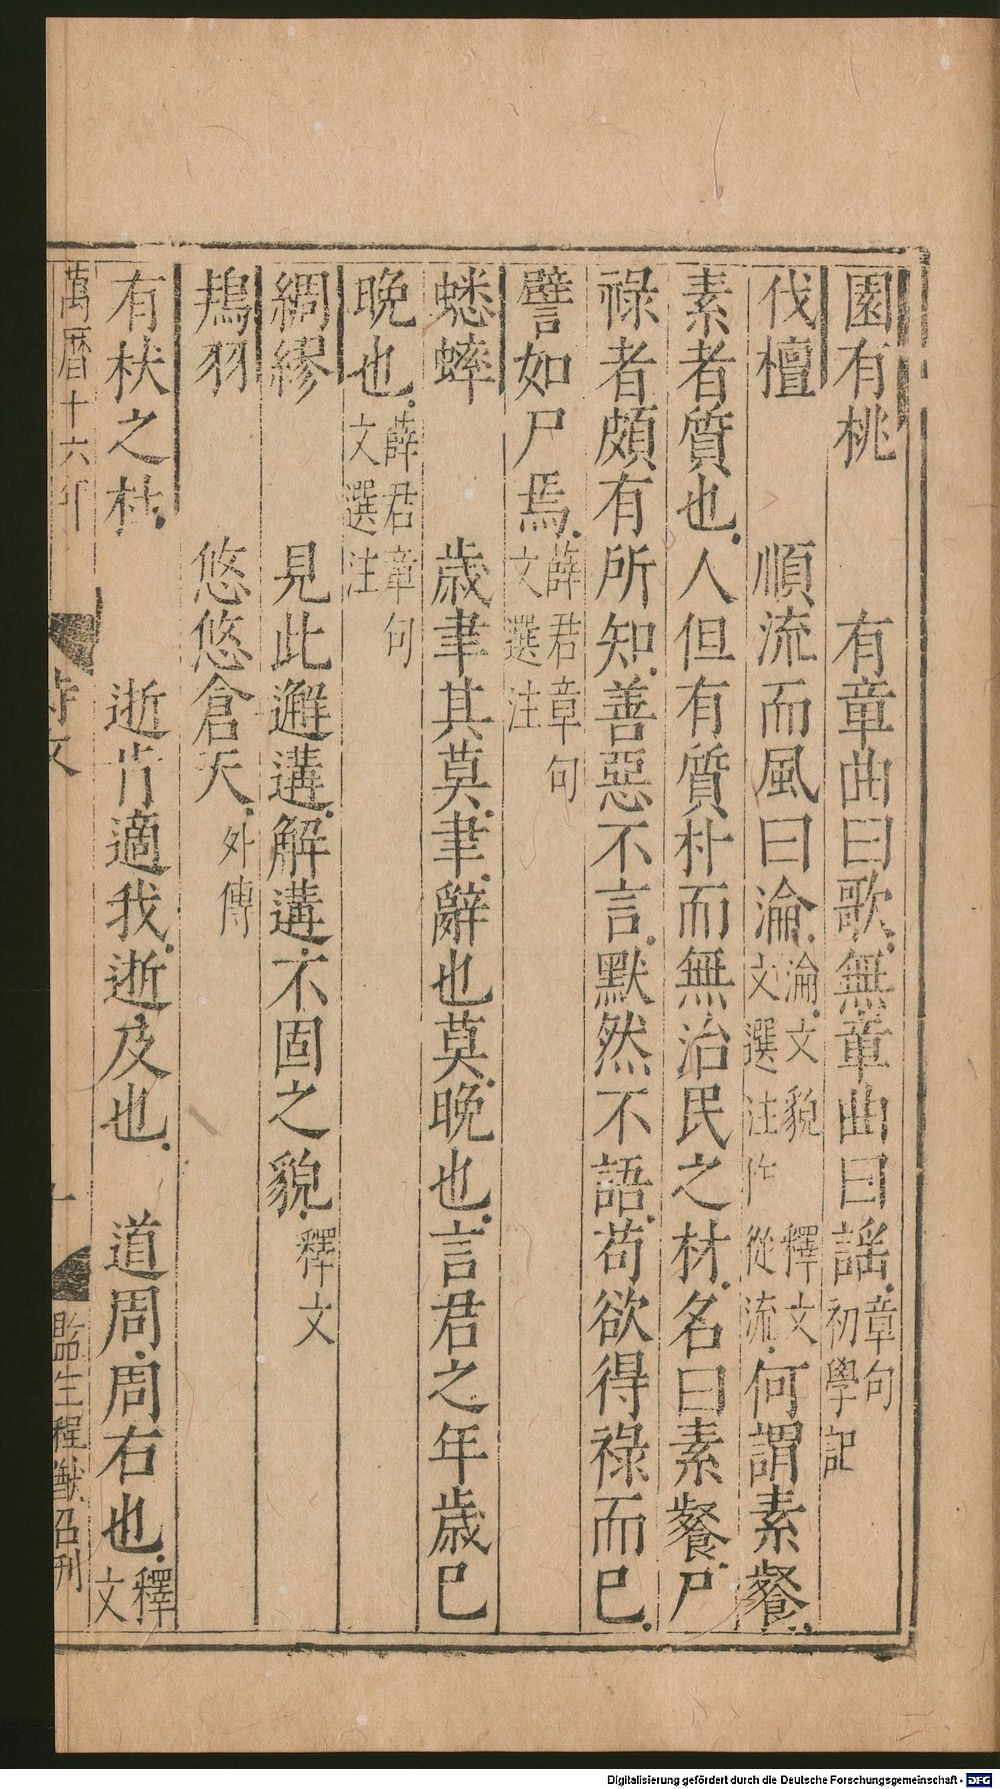 園有桃　有章曲曰歌無章曲曰謠章句初學記
伐檀　順流而風曰淪淪文貌釋文文選注作從流何謂素餐
素者質也人但有質朴而無治民之材名曰素餐尸
祿者頗有所知善惡不言默然不語苟欲得祿而已
譬如尸焉薛君章句文選注
蟋蟀　歲聿其莫聿辭也莫晚也言君之年歲已
晚也薛君章句文選注
綢繆　見此邂遘解遘不固之貌釋文
鴇羽　悠悠倉天外傳
有杕之杜　逝肯適我逝及也　道周周右也釋文
萬曆十六年　詩文　十　監生程猷召刊
Digitalisierung gefördert durch die Deutsche Forschungsgemeinschaft - DFG